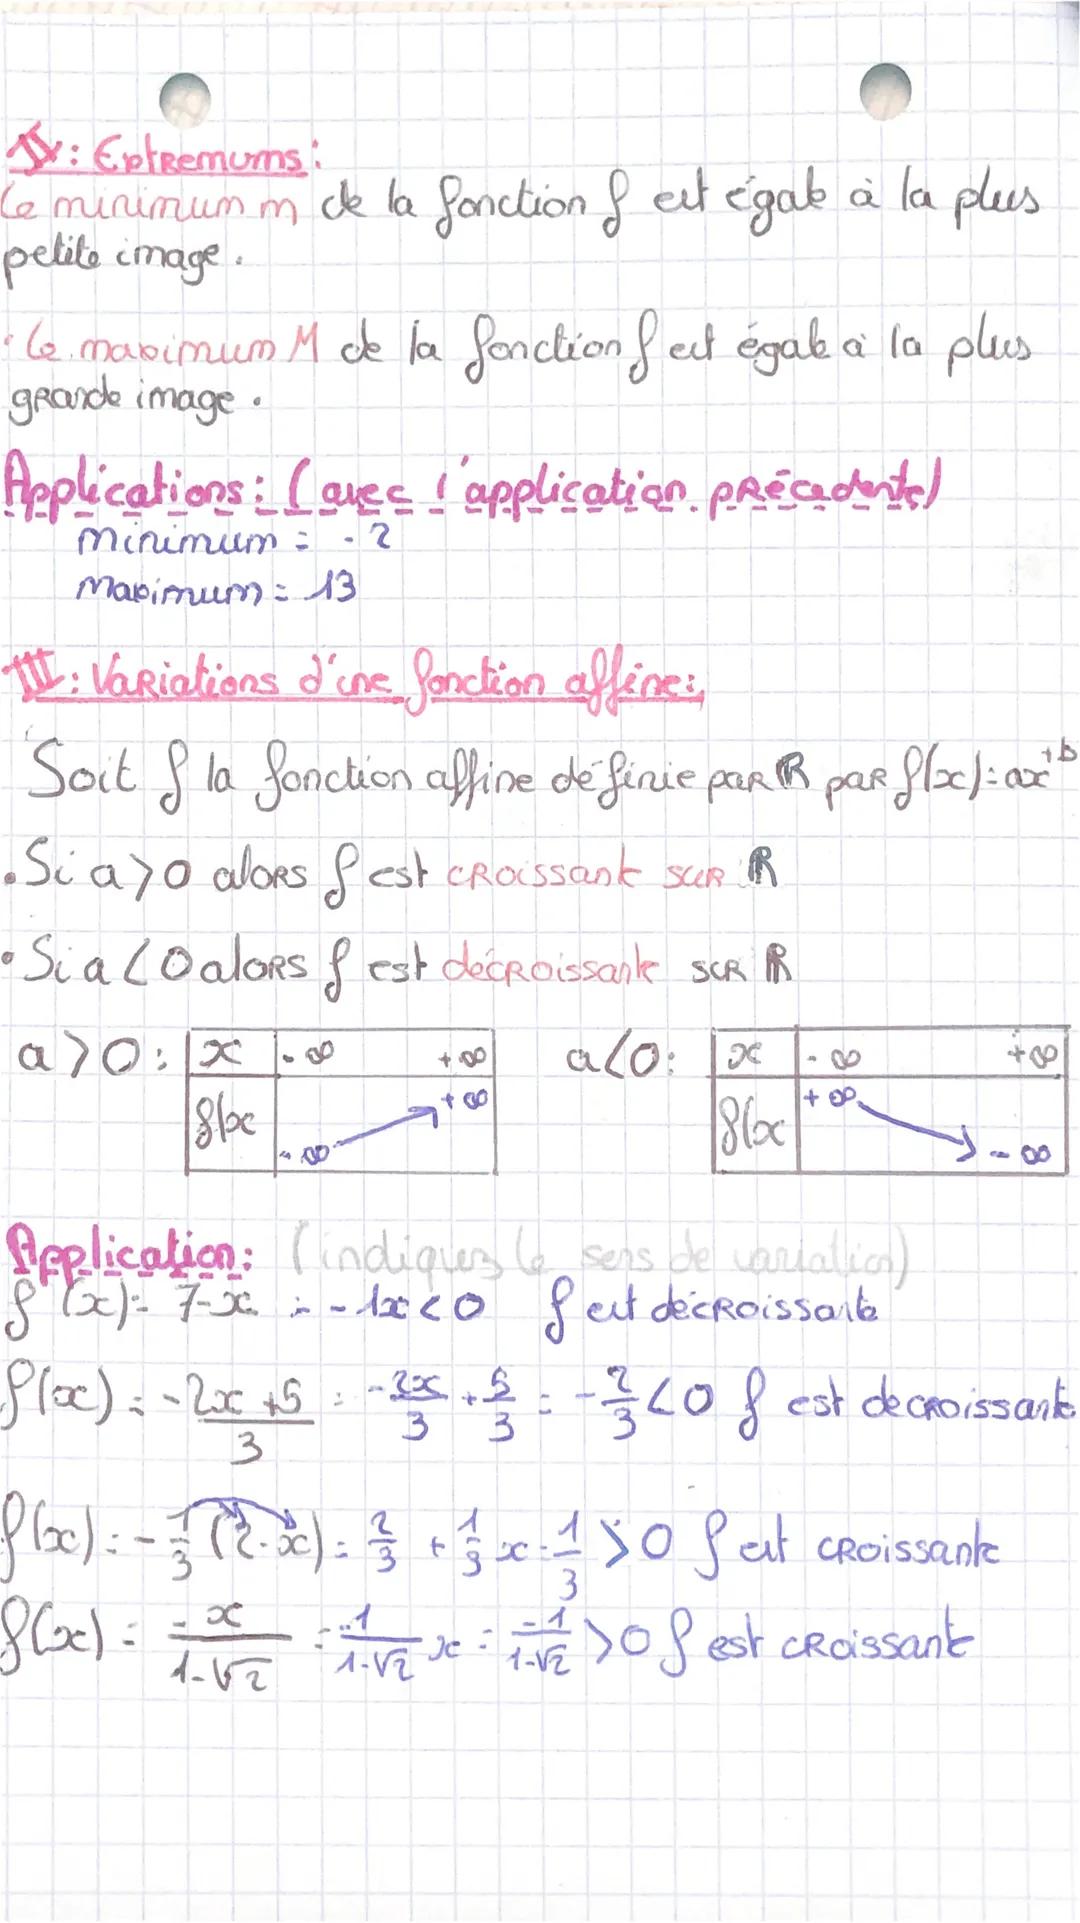 II: Extremums:
Le minimum m de la fonction f est égale à la plus
petite image.
• Le maximum M de la fonction f est égale à la plus
grande image.
Applications: (avec l'application précedente)
minimum = -2
maximum = 13
III: Variations d'une fonction affine:
Soit f la fonction affine définie par ℝ par f(x)=ax+b
• Si a>0 alors f est croissante sur ℝ
• Si a<0 alors f est décroissante sur ℝ
a>0: x -∞ +∞ a<0: x -∞ +∞
f(x +∞ f(x +∞
-∞ -∞
Application: (indiquez le sens de variation)
f(x)= 7-x = -1x<0 f est décroissante
f(x) = -2x+5/3 = -2x/3 + 5/3 = -2/3 <0 f est decroissante
f(x) = -1/3 (2-x) = 2/3 + 1/3 x = 1/3 >0 f est croissante
f(x) = -x/1-√2 = -1/1-√2 x = -1/1-√2 >0 f est croissante